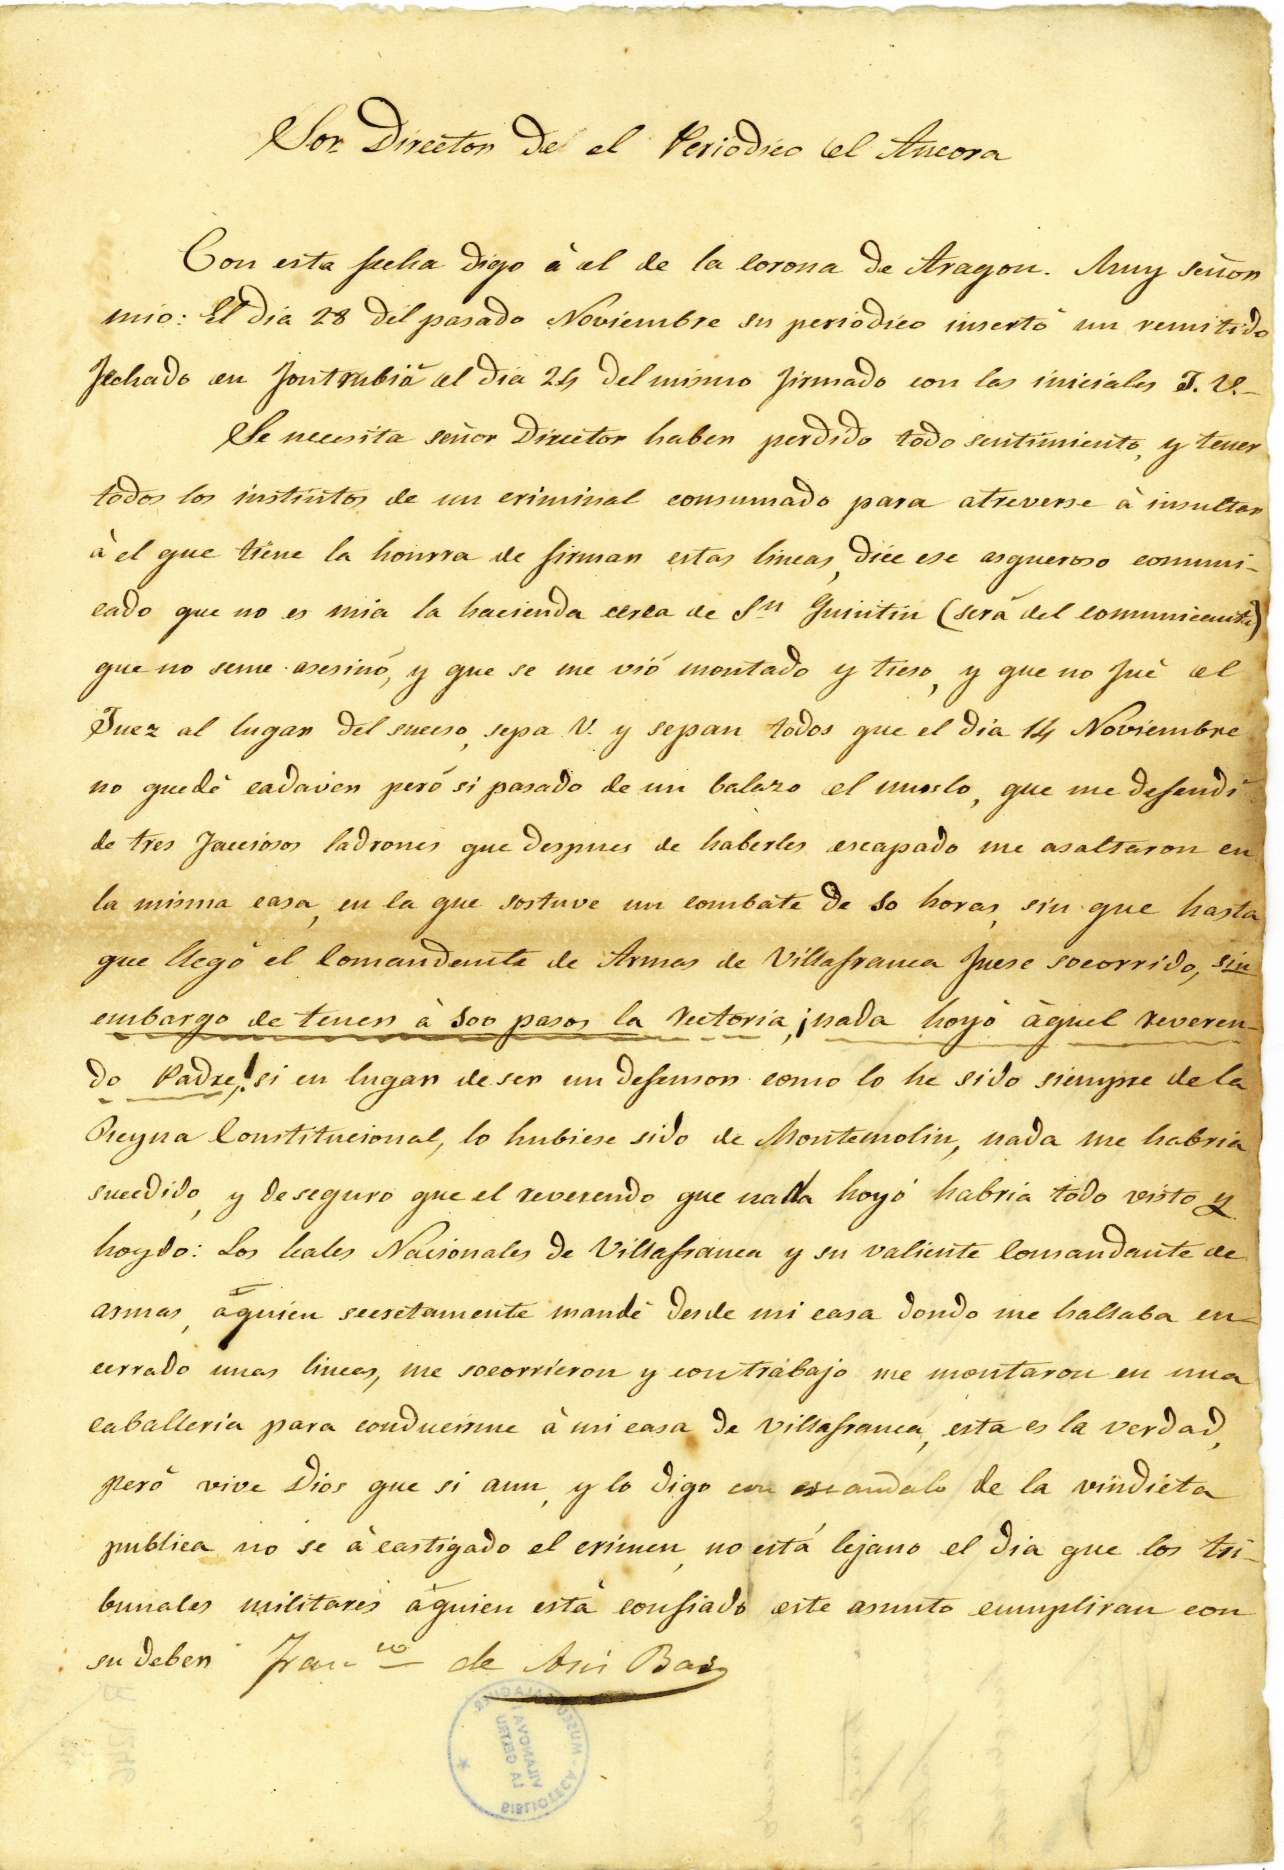 Sor. Director de el Periodico el Ancora
Con esta fecha digo à el de la corona de Aragon. Muy señor
mio: El dia 28 del pasado Noviembre su periódico insertó un remitido
fechado en fontrubiá el dia 24 del mismo firmado con las iniciales J. V.-
Se necesita señor Director haber perdido todo sentimiento, y tener
todos los instintos de un criminal consumado para atreverse à insultar
à el que tiene la honrra de firmar estas lineas, dice ese asqueroso comuni-
cado que no es mia la hacienda cerca de Sn Quintin (será del comunicante)
que no seme asesinó, y que se me vió montado y tieso, y que no fué el
Juez al lugar del suceso, sepa V. y sepan todos que el dia 14 Noviembre
no quedé cadaver peró si pasado de un balazo el muslo, que me defendí
de tres facciosos ladrones que despues de haberles escapado me asaltaron en
la misma casa, en la que sostuve un combate de 10 horas, sin que hasta
que llegó el Comandante de Armas de Villafranca fuese socorrido, sin
embargo de tener à 300 pasos la Rectoria, ¡nada hoyó àquel reveren-
do Padre,! si en lugar de ser un defensor como lo he sido siempre de la
Reyna Constitucional, lo hubiese sido de Montemolin, nada me habria
sucedido, y de seguro que el reverendo que nada hoyó habria todo visto y
hoydo: Los leales Nacionales de Villafranca y su valiente Comandante de
armas, àquien secretamente mandé desde mi casa dondo me hallaba en-
cerrado unas lineas, me socorrieron y con trabajo me montaron en una
caballeria para conducirme à mi casa de Villafranca, esta es la verdad,
peró vive Dios que si aun, y lo digo con escandalo de la vindicta
publica no se à castigado el crimen, no está lejano el dia que los tri-
bunales militares àquien está confiado este asunto cumpliran con
su deber Franco de Asis Bas
BIBLIOTECA MUSEU BALAGUER
VILANOVA I
LA GELTRU